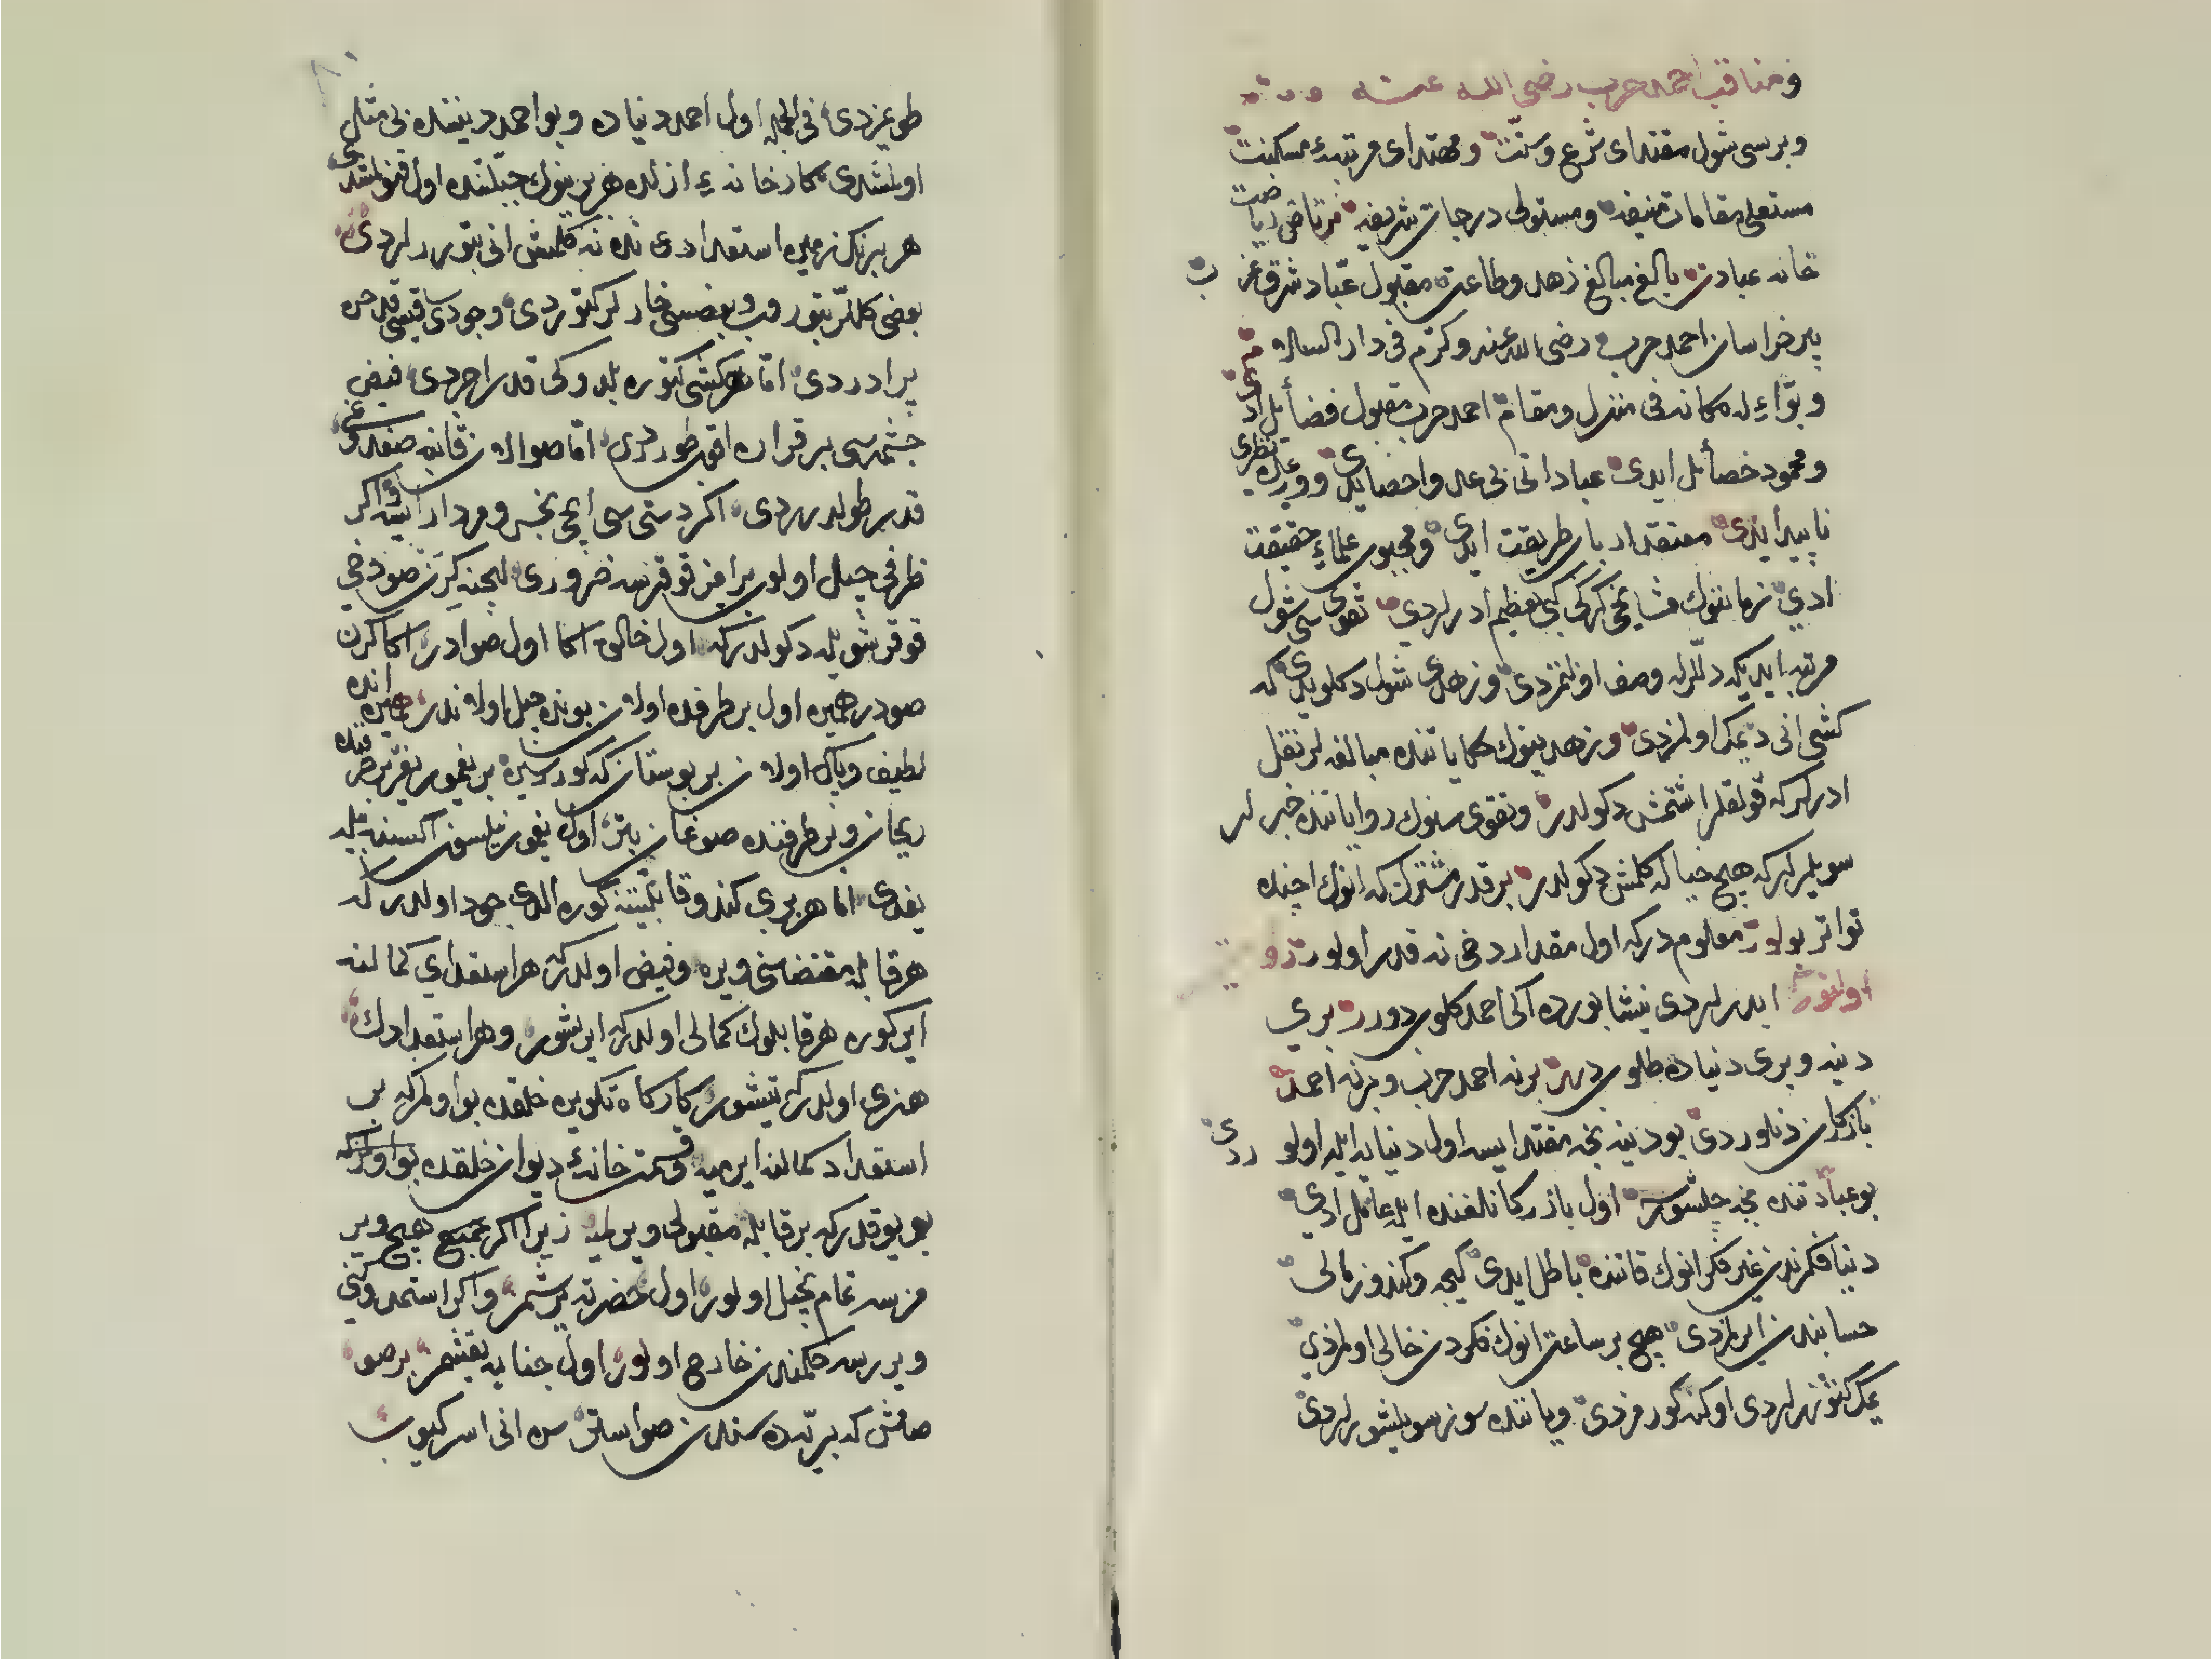 ومناقب احمد حرب رضی الله عنه
وبرسی شول مقتدای شرع وسنّت ومهتدای مرتبهٔ مسکنت
مستعلی مقامات منیفه ومستولی درجات شریفه مرتاض ریاضت
خانه عبادت بالغ مبالغ زهد وطاعت مقبول عبّاد شرق غرب
پیر خراسان احمد حرب رضی الله عنه وکرّم فی دار السلام
وبوّاءله مکانه فی منزل ومقام احمد حرب مقبول فضائل ادی
ومحمود خصائل ایدی عباداتی بی عد واحصایدی وورعده نظری
ناپیدایدی معتقد ارباب طریقت ایدی ومحبوب علماء حقیقت
ادی زماننوك مشایخی کرکی کبی تعظیم ادرلردی تقوی سی شول
مرتبه ایدیکه دللرله وصف اولنمزدی وزهدی شول دکلویدی که
کشی انی دیمك اولمزدی وزهدینوك حکایاتنده مبالغه لر نقل
ادرلرکه قولقلر اشتمش دکولدر وتقوی سنوك روایاتنده خبرلر
سویلرلرکه هیچ خیاله کلمش دکولدر بر قدر مشترك که انوك اچنده
تواتر بولور معلوم درکه اول مقدار دخی نه قدر اولور
ایدرلردی نیشابورده اکی احمد کلوب دورر بری
دینه وبری دنیاده طلوب درر برنه احمد حرب وبرنه احمد
بازرکان دنلوردی بو دینه نجه مقتدا ایسه اول دنیایه ایله اولوردی
بو عبادتنده نجه چلشور اول بازرکانلغنده ایله عامل ادی
دنیا فکرندن غیر فکر انوك قاتنده باطل ایدی کیجه وکندوز مالی
حسابندن ایرلمزدی هیچ بر ساعت انوك فکردن خالی اولمزدی
یمك کتورلردی اوکنه کورمزدی ویاننده سوز سویلشورلردی
طویمزدی فی الجمله اول احمد دنیاده وبو احمد دیننده بی مثل
اولمشدی کارخانهٔ ازلده هر برینوك جبلّتنده اول قونلمشدی
هر بر نك زمیره استعدادی نده نه کلمش انی بتوررلردی
بعضی کللر بتوروب وبعضسی خارلر کتوردی وجودی قپسی قدحن
بر ادردی امّا هر کشی کتوره بلدوکی قدر اچردی فیض
چشمه سی بر قرارده اقه طوردی امّا صو الان قابنه صغدوغی
قدر طولدرردی اکر دستی سی ایچی نجس ومردار ایسه واکر
ظرفی چپل اولوب بر امز قوقرسه ضروری ایچنه کرن صو دخی
قوقر شویله دکولدرکه اول خالق اکا اول صوادر اکا کرن
صودر همین اول بر طرفده اولان بونده چپل اولاندر همین انده
لطیف وپاك اولان بر بوستان که کوررسین بر یغمور یغر بر طرفنده
ریحان وبر طرفنده صوغان بتر اول یغمور نیلسون اکسنه بیله
یغدی امّا هر بری کندو قابلیّتنه کوره الدی جود اولدر که
هر قابله مقتضاسنی ویره وفیض اولدر که هر استعدادی کمالنه
ایرکوره هر قابلوك کمالی اولدر که ایرشور وهر استعدادك
هنری اولدر که تیشور کارکاه تکوین خلقده بو اولمز که بر
استعداد کمالنه ایرمیه قسمت خانهٔ دیوان خلقده بو اولمز که
بو یوقدر که بر قابله مقبولی ویرلمیه زیرا اکر جمیع هیچ ویر
مزسه تمام بخیل اولور اول حضرته یرشمز واکر استمدوکنی
ویررسه حکمتدن خارج اولور اول جنابه یقشمز بر صو
صامش که بریّه ده سندن صو استر سن انی اسرکیوب